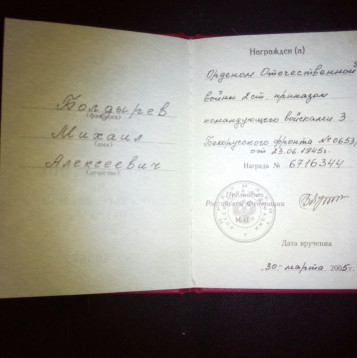 Болдырев
(фамилия)
Михаил
(имя)
Алексеевич
(отчество)
Награжден (а)
Орденом Отечественной
войны 2ст. приказом
командующего войсками 3
Белорусского фронта №0653,
от 23.06.1945г.
Награда № 6716344
Президент
Российской Федерации
М.П.
Дата вручения
"30" марта 2005 г.